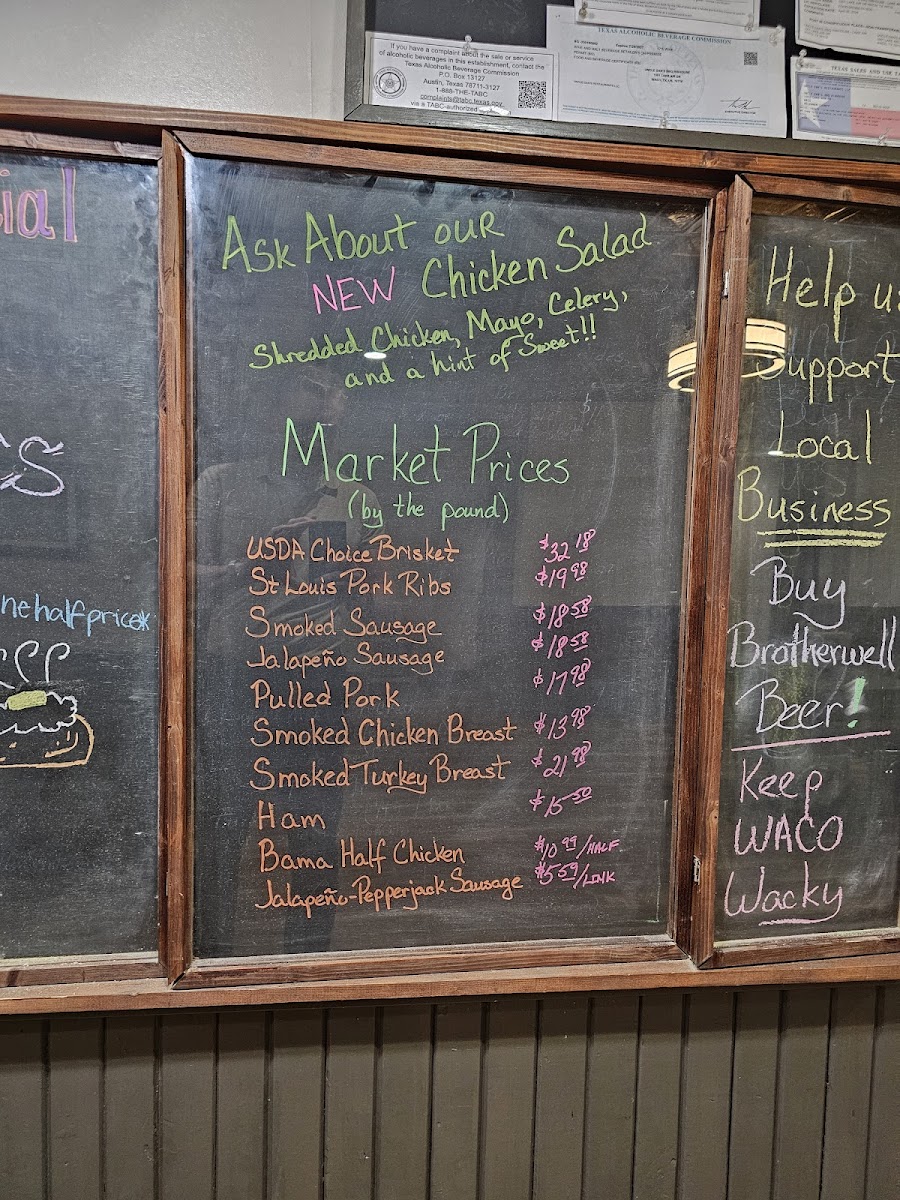 If you have a complaint about the sale or service
of alcoholic beverages in this establishment, contact the
Texas Alcoholic Beverage Commission
P.O. Box 13127
Austin, Texas 78711-3127
1-888-THE-TABC
complaints@tabc.texas.gov
via a TABC-authorized
TEXAS ALCOHOLIC BEVERAGE COMMISSION
TEXAS SALES AND USE
ial
nehalfprice*
Ask About our
NEW Chicken Salad
Shredded Chicken, Mayo, Celery,
and a hint of Sweet!!
Market Prices
(by the pound)
USDA Choice Brisket $32.18
St Louis Pork Ribs $19.98
Smoked Sausage $18.58
Jalapeño Sausage $18.58
Pulled Pork $17.98
Smoked Chicken Breast $13.98
Smoked Turkey Breast $21.98
Ham $15.50
Bama Half Chicken $10.99/HALF
Jalapeño-Pepperjack Sausage $5.59/LINK
Help us
Support
Local
Business
Buy
Brotherwell
Beer!
Keep
WACO
Wacky